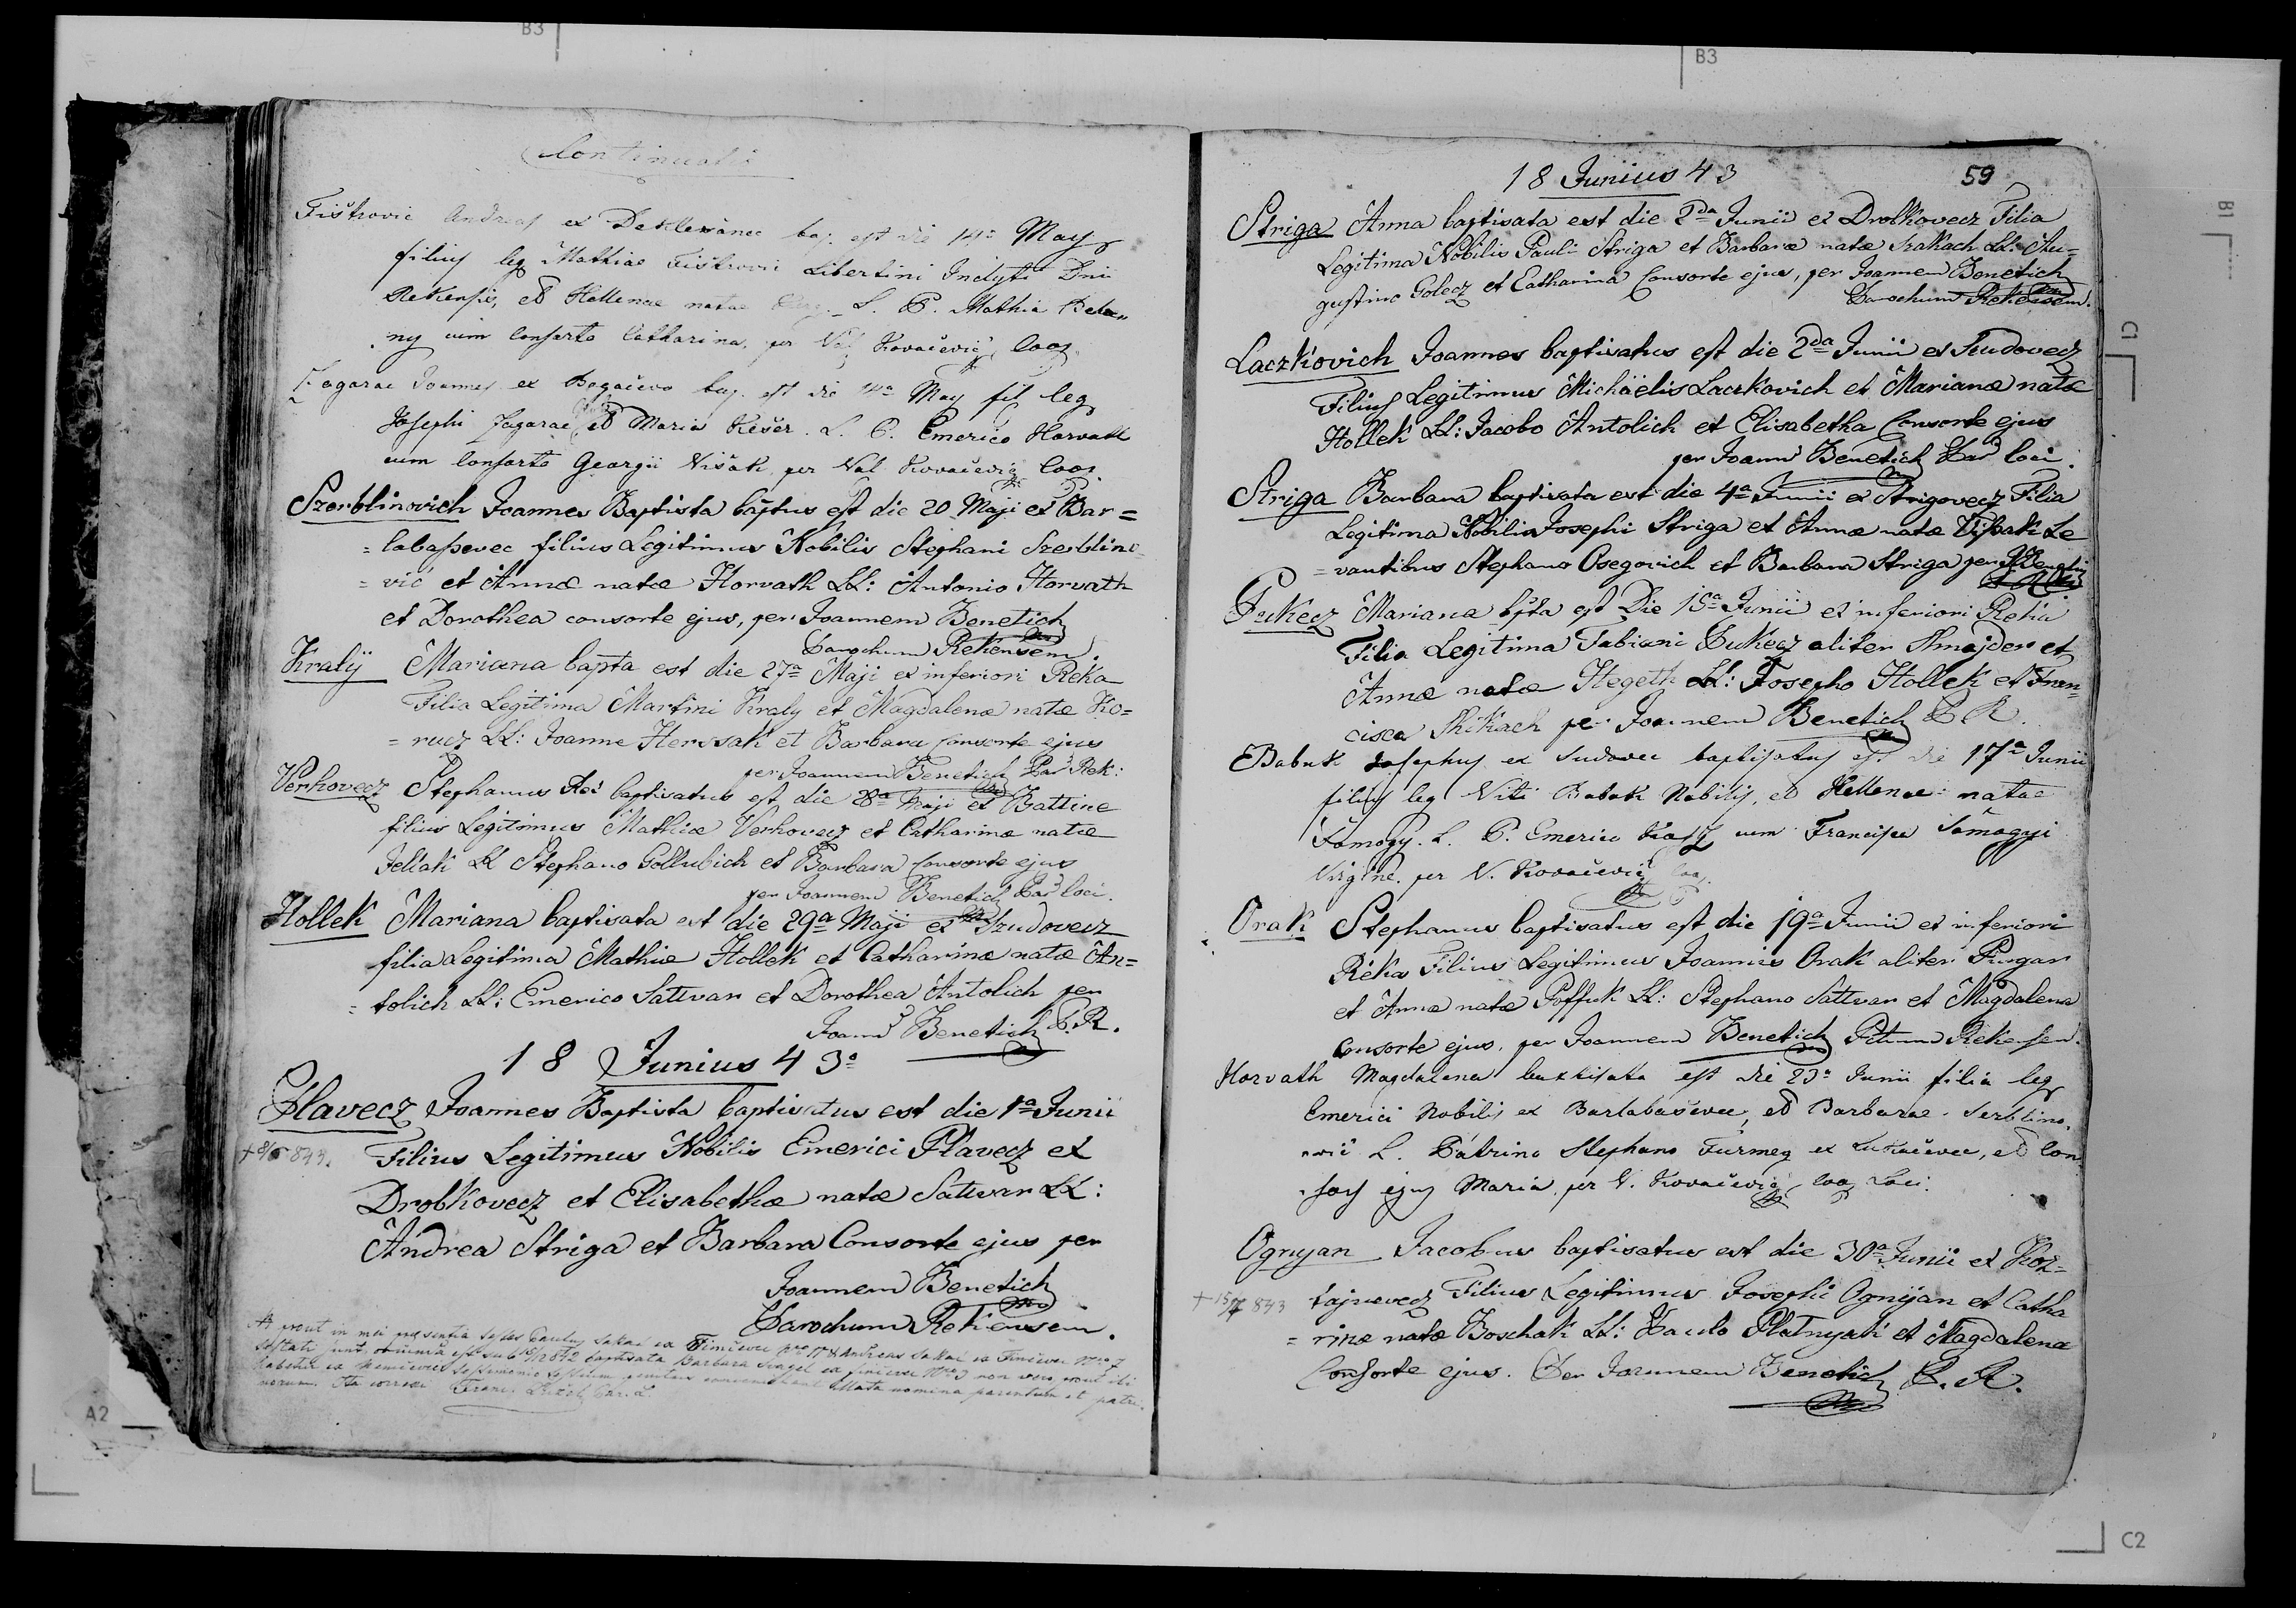 B3
B3
B1
C1
A2
C2
Continuatio
Fištrović Andreas ex Deklešanec bap. est die 14a May
filius leg Mathiae Fištrović Libertini Inclyti Dnii
Rekensis, et Hellenae natae L. P. Mathia
ny cum consorte Catharina, per Val Kovačević Coop.
Zagarac Joannes ex Bogačevo bap. est die 14a May fil leg
Josephi Zagarac et Maria Kešer. L. P. Emerico Horvath
cum consorte Georgii Višak per Val Kovačević Coop.
Szerblinovich Joannes Baptista baptus est die 20 Maji ex Bar=
=labassevec filius Legitimus Nobilis Stephani Szerblino
=vić et Annæ natæ Horvath LL: Antonio Horvath
et Dorothea consorte ejus, per Joannem Benetich
Parochum Rekensem.
Kralÿ Mariana bapta est die 27a Maji ex inferiori Reka
Filia Legitima Martini Kraly et Magdalenæ natæ Ko=
=rucz LL: Joanne Herssak et Barbara Consorte ejus
per Joannem Benetich Par Rek:
Verhovecz Stephanus Rex baptisatus est die 28a Maji ex Battine
filius Legitimus Mathiæ Verhovecz et Catharinæ natæ
Jellak LL Stephano Gollubich et Barbara Consorte ejus
per Joannem Benetich Par loci.
Hollek Mariana baptisata est die 29a Maji ex Szudovecz
filia Legitima Mathiæ Hollek et Catharinæ natæ An=
=tolich LL: Emerico Sattvar et Dorothea Antolich per
Joann Benetich P.R.
18 Junius 43o
Plavecz Joannes Baptista baptisatus est die 1a Junii
+ 8/6 843. Filius Legitimus Nobilis Emerici Plavecz ex
Drobkovecz et Elisabethæ natæ Sattvar LL:
Andrea Striga et Barbara Consorte ejus per
Joannem Benetich
Parochum Rekensem.
prout in mei presentia testes Paulus Sakač ex Finičevec Nro 17 & Andreas Sakač ex Finičevec Nro 7
testati sunt omissa est sub 842 baptisata Barbara ex Finičevec Nro 3 non vero prout ibi
habetur ex Nemčevec testimonio testium penitus conveniebant allata nomina parentum et patri-
norum. Ita correxi Franc. Par. L.
18 Junius 43 59
Striga Anna baptisata est die 2da Junii ex Drobkovecz Filia
Legitima Nobilis Pauli Striga et Barbaræ natæ Szakach LL: Au=
gustino Golecz et Catharina Consorte ejus, per Joannem Benetich
Parochum Rekensem.
Laczkovich Joannes baptisatus est die 2da Junii ex Szudovecz
Filius Legitimus Michaëlis Laczkovich et Marianæ natæ
Hollek LL: Jacobo Antolich et Elisabetha Consorte ejus
per Joann Benetich Par loci.
Striga Barbara baptisata est die 4a Junii ex Strigovecz Filia
Legitima Nobilis Josephi Striga et Annæ natæ Vissak Le
=vantibus Stephano Osegovich et Barbara Striga per J. Benetich
Pukecz Mariana bpta est Die 15a Junii ex inferiori Reka
Filia Legitima Fabiani Pukecz aliter Shnajder et
Annæ natæ Hegeth LL: Josepho Hollek et Fran=
cisca Shikach per Joannem Benetich P R.
Babuk Josephus ex Sudovec baptisatus est die 17a Junii
filius leg Viti Babok Nobilis, et Hellenae natae
Šomogy. L. P. Emerico cum Francisca Šomogyi
Virgine. per V. Kovačević Coop.
Orak Stephanus baptisatus est die 19a Junii ex inferiori
Reka Filius Legitimus Joannis Orak aliter Purgar
et Annæ natæ Posffuk LL: Stephano Sattvar et Magdalena
Consorte ejus, per Joannem Benetich Rekensem.
Horvath Magdalena baptisata est die 23a Junii filia leg
Emerici Nobilis ex Barlabaševec, et Barbarae Serblino,
"vić L. Patrino Stephano Furmeg ex Lukačevec, et Con
"sors ejus Maria, per V. Kovačević Coop Loci.
Ognyan Jacobus baptisatus est die 30a Junii ex Koz=
+ 15/7 843 tajnevecz Filius Legitimus Josephi Ognyan et Catha
=rinæ natæ Boschak LL: Paulo Platnyak et Magdalena
Consorte ejus. Per Joannem Benetich P. R.